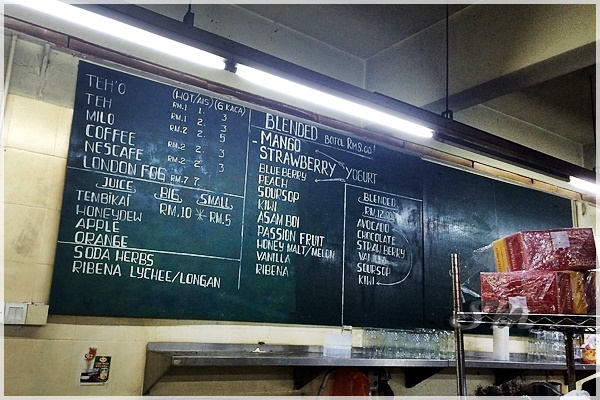 TEH'O (HOT/AIS) (G KACA)
TEH RM.1 1. 3
MILO RM.2 2. 3
COFFEE RM.2 2. 5
NESCAFE RM.2 2. 3
LONDON FOG RM.7 7.
JUICE BIG SMALL
TEMBIKAI RM.10 * RM.5
HONEYDEW
APPLE
ORANGE
SODA HERBS
RIBENA LYCHEE/LONGAN
BLENDED BOTOL RM8.00!
MANGO
STRAWBERRY YOGURT
BLUEBERRY
PEACH
SOURSOP
KIWI
ASAM BOI
PASSION FRUIT
HONEY MALT/MELON
VANILLA
RIBENA
BLENDED
RM.12.00
AVOCADO
CHOCOLATE
STRAWBERRY
VANILLA
SOURSOP
KIWI